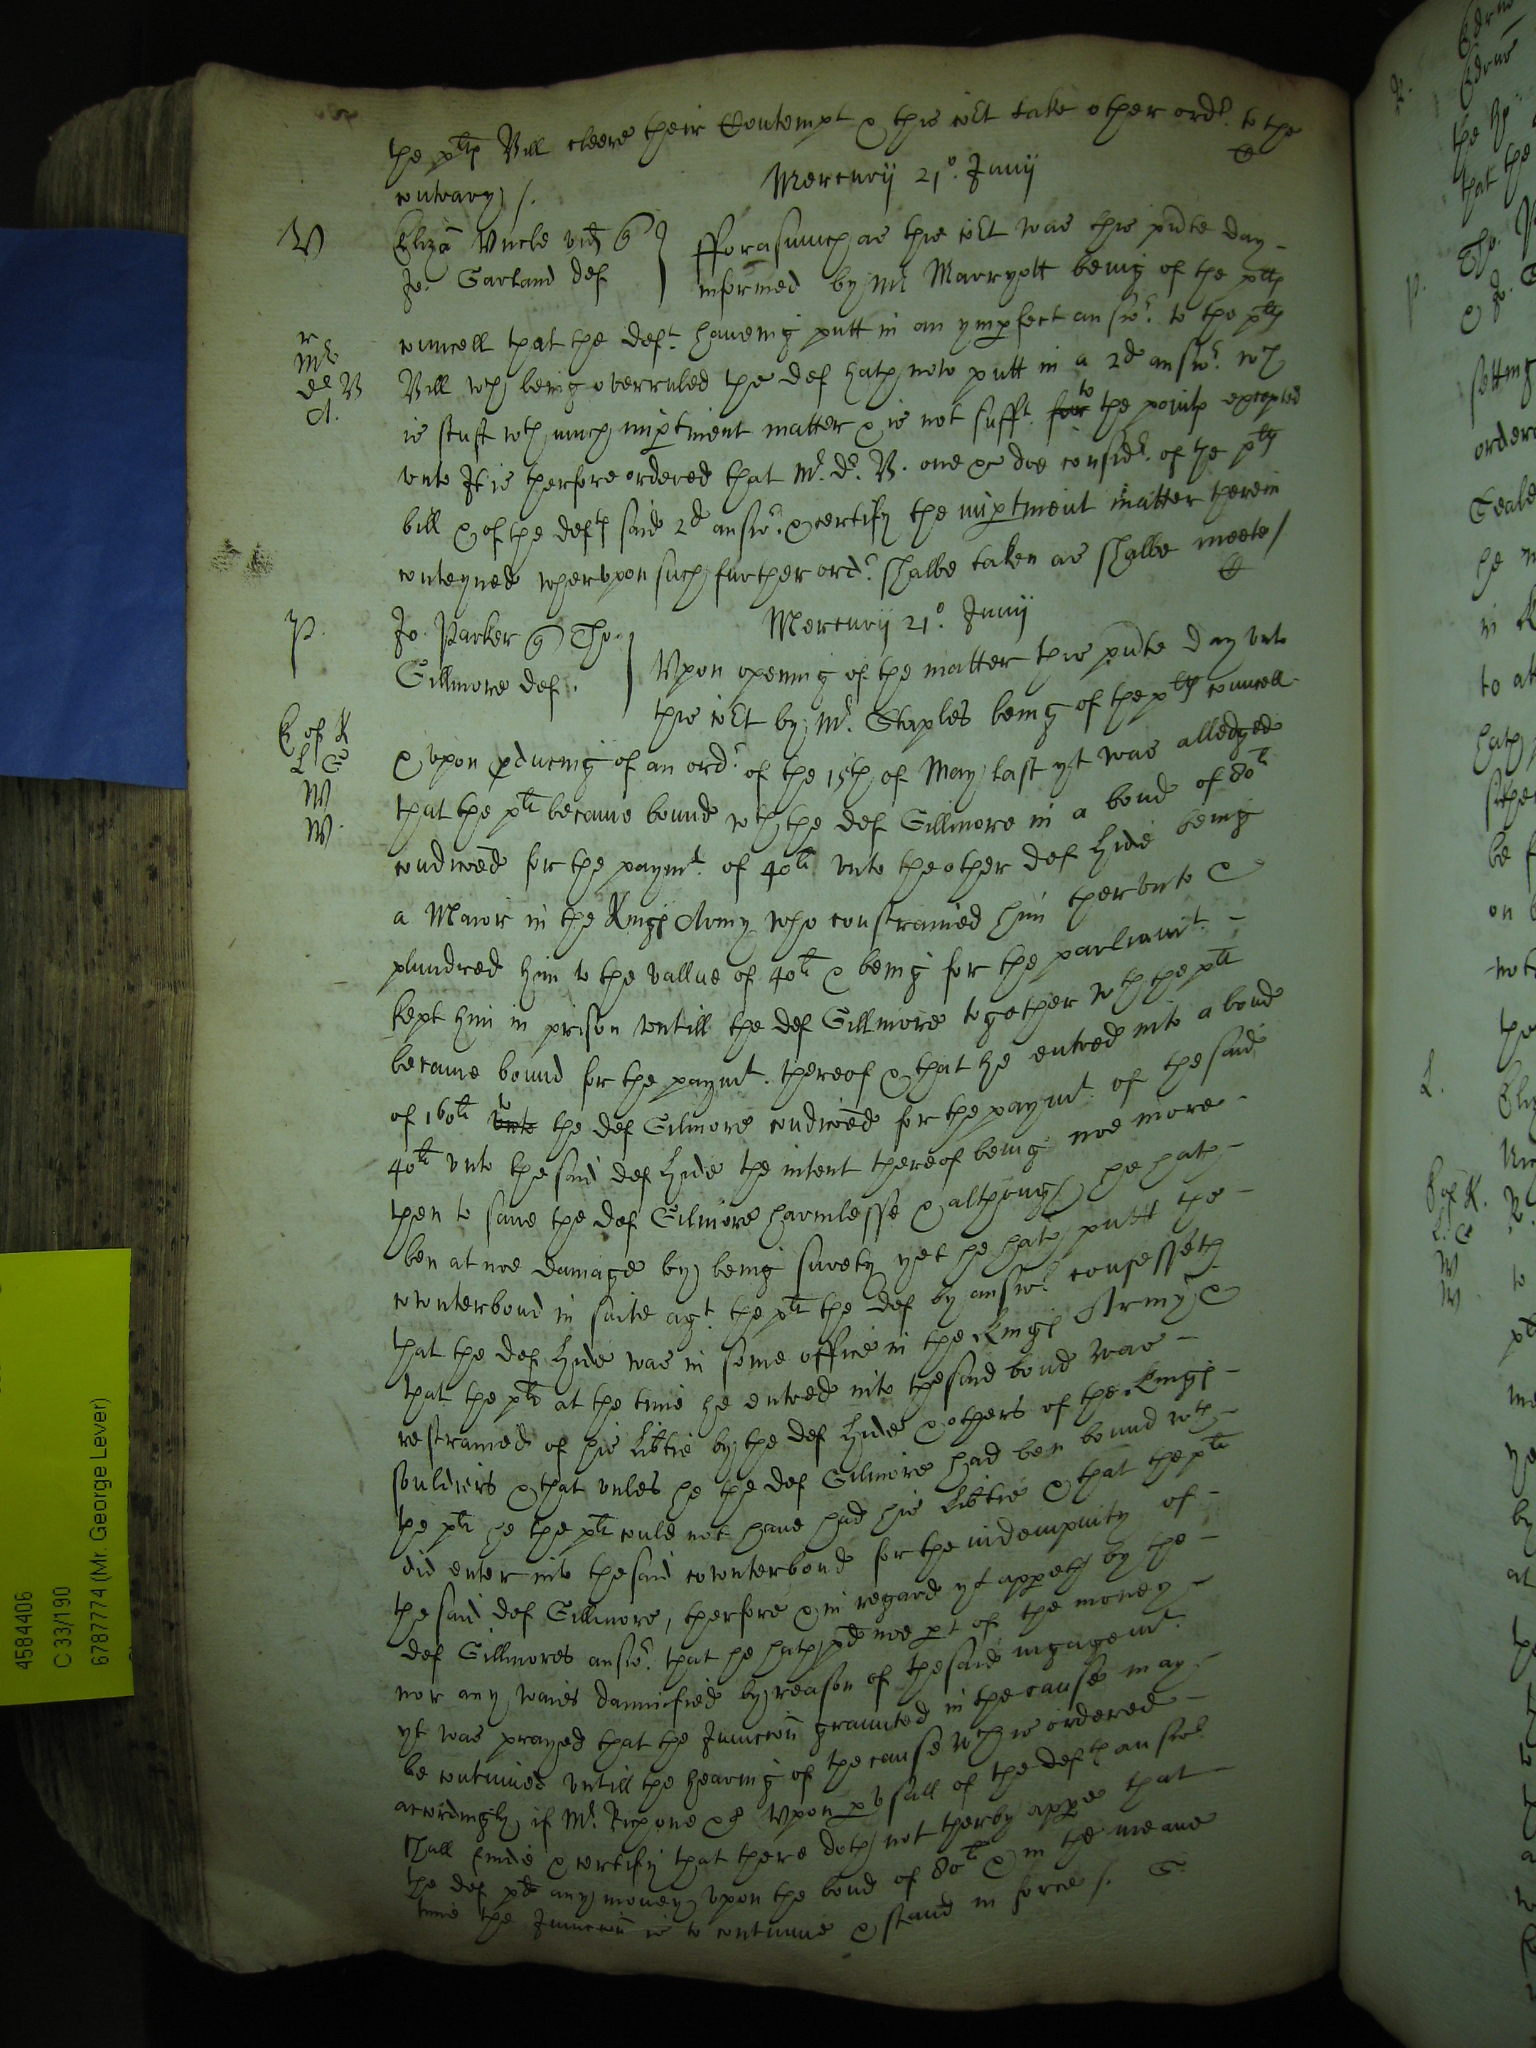 the plts Bill cleere their Contempt & this cot take other ordr. to the
contrary /.
Mercurij 21o. Junij
V
Eliza Vncle vid
Jo. Garland def
fforasmuch as this cot was this pnte day
informed by Mr Marryott being of the plts
councell that the deft. haueing putt in an ymperfect answr. to the plts
Mr
de B
A.
Bill wch being overruled the def hath now putt in a 2d answr. wch
is stuft wth much impertinent matter & is not sufft. for to the points excepted
vnto It is therfore ordered that Mr. De. B. one &c doe considr. of the plts
bill & of the defts said 2d answr. & certify the impertinent matter therein
conteyned wherupon such further ordr. shalbe taken as shalbe meete /
Mercurij 21o. Junij
P.
Jo. Parker Tho.
Gillmore def.
Vpon opening of the matter this pnte day vnto
this cot by Mr. Staples being of the plts councell
E of K
L G
W
W.
& vpon producing of an ordr of the 15th of May last yt was alledged
that the plt became bound wth the def Gillmore in a bond of 80li
condiconed for the paymt. of 40li vnto the other def Hide being
a Maior in the Kings Army who constrained him thervnto &
plundred him to the vallue of 40li & being for the parliamt.
kept him in prison vntill the def Gillmore together wth the plt
became bound for the paymt. thereof & that he entred into a bond
of 160li vnto to the def Gilmore condiconed for the paymt. of the said
40li vnto the said def Hide the intent thereof being noe more
then to saue the def Gilmore harmlesse & although he hath
ben at noe damage by being surety yet he hath putt the
counterbond in suite agt. the plt the def by answr confesseth
that the def Hide was in some office in the Kings Army &
that the plt at the time he entred into the said bond was
restrained of his libtie by the def Hide & others of the Kings
souldiers & that vnles he the def Gilmore had ben bound wth
the plt he the plt could not haue had his libtie & that the plt
did enter into the said counterbond for the indempnity of
the said def Gillmore, therfore & in regard yt appeth by the
def Gillmores answr. that he hath pd noe pt of the money
nor any waies damnified by reason of the said ingagemt.
yt was prayed that the Junccon graunted in the cause may
be continued vntill the hearing of the cause wch is ordered
accordingly if Mr. Rich one &c Vpon pvsall of the defts answr
shall finde & certify that there doth not therby appe that
the def pd any money vpon the bond of 80li & in the meane
time the Junccon is to continue & stand in force /. G
4584406
C 33/190
6787774 (Mr. George Lever)